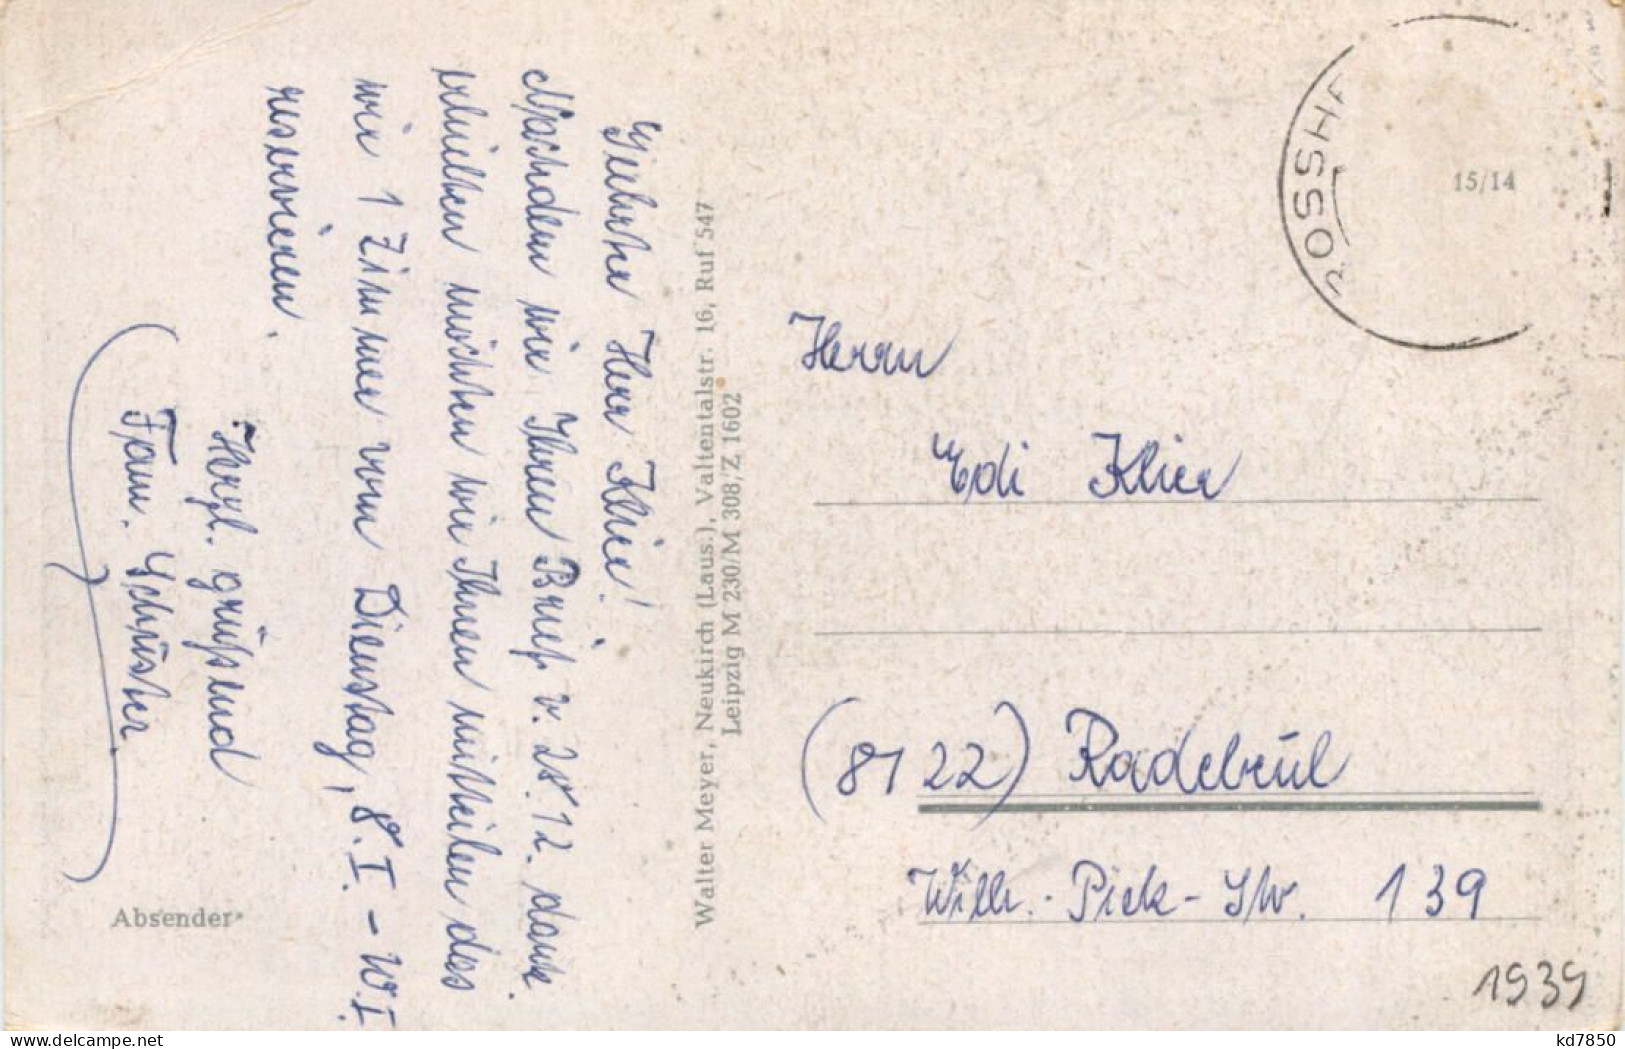 Geehrter Herr Klier!
Nachdem wir Ihren Brief v. 28.12. dank.
erhielten möchten wir Ihnen mitteilen das
wir 1 Zimmer vom Dienstag, 8.I. - 10.I.
reservieren.
Herzl. grüßend
Fam. Schuster
Absender
Walter Meyer, Neukirch (Laus.), Valtentalstr. 16, Ruf 547
Leipzig M 230/M 308/Z 1602
ROSSHA
15/14
Herrn
Edi Klier
(8122) Radebeul
Wilh.-Pieck-Str. 139
1939
www.delcampe.net
kd7850